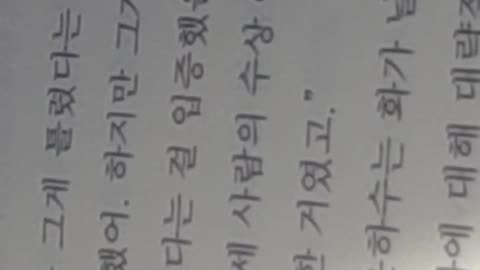 그게 틀렸다는
했어. 하지만
다는 걸 입증했
세 사람의 수상
한 거였고.”
하수는 화가
에 대해 대략